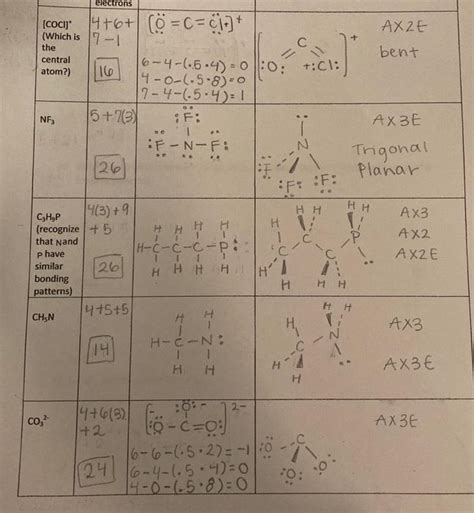 electrons
[COCl]+
(Which is
the
central
atom?)
4+6+
7-1
16
[Ö=C=C̈l]+
6-4-(.5·4)=0
4-0-(.5·8)=0
7-4-(.5·4)=1
C
:O: +:Cl: +
AX2E
bent
NF3
5+7(3)
26
:F:
:F-N-F:
N
:F: :F: :F:
AX3E
Trigonal
Planar
C3H9P
(recognize
that N and
P have
similar
bonding
patterns)
4(3)+9
+5
26
H H H H
H-C-C-C-P:
H H H H
H H H H
H C C C P
H H H H
AX3
AX2
AX2E
CH5N
4+5+5
14
H H
H-C-N:
H H
H H H
H C N
H
AX3
AX3E
CO32-
4+6(3)
+2
24
:O:-
[:O-C=O:]2-
6-6-(.5·2)=-1
6-4-(.5·4)=0
4-0-(.5·8)=0
:O C
:O: :O:
AX3E